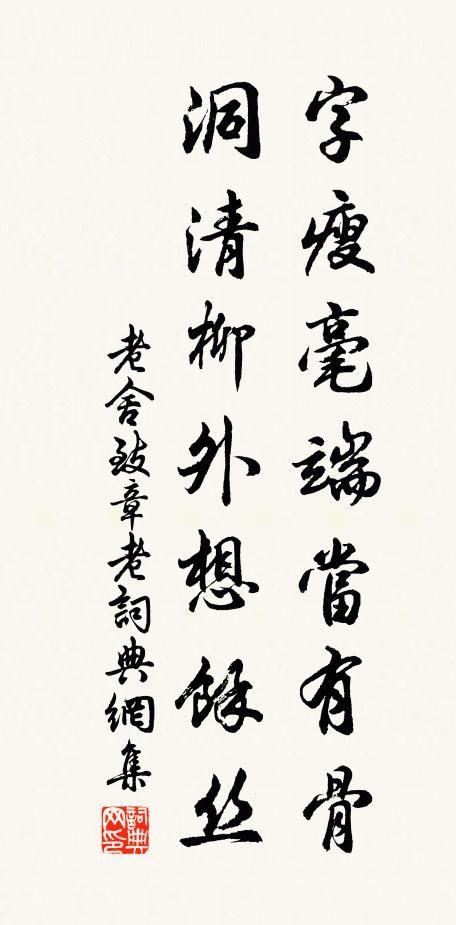 字瘦毫端當有骨
洞清柳外想餘丝
老舍致章老詞典網集
詞典网印